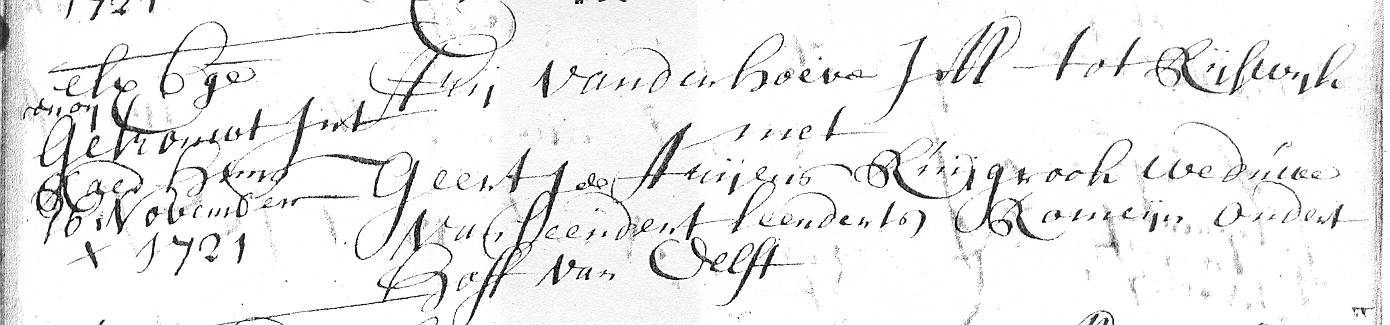 1721
elx 6 ge
Getrouwt int
Raed Huys
16 November
x 1721
Arij vander hoeve J M tot Rijswyk
met
Geertje Arijens Rhijgrook weduwe
van Leendert leenderts Romeijn ondert
Hoff van Delft